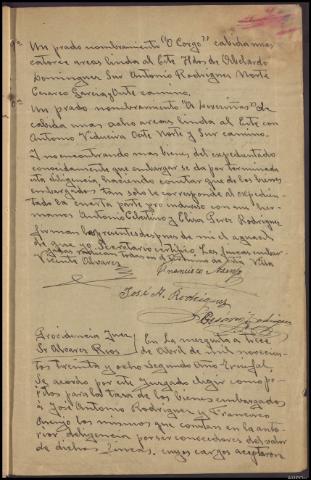 7ª Un prado nombramento "O Corgo" cabida unas
catorce areas linda al Este Hdos de Abelardo
Dominguez Sur Antonio Rodriguez Norte
García Oeste camino.
8ª
Un prado nombramento "A de
cabida unas ocho areas linda al Este con
Antonio Vidueira Oeste Norte y Sur camino.
Y no encontrando mas bienes del expedientado
conocidamente que embargar se da por terminada
esta diligencia haciendo constar que de los bienes
embargados tan solo le corresponde al expedien
tado la cuarta parte pro indiviso con sus her-
manos Antonio y Elvira Perez Rodriguez
firman los presentes despues de mi el agual
de que yo Secretario certifico. Las fincas embar
gadas radican todas en el termino de esta Villa
Vicente Alvarez
Francisco Asenjo
José A. Rodriguez
Cesareo Rodriguez
Providencia Juez
Sr Alvarez Rios
En La Mezquita a trece
de Abril de mil novecien
tos treinta y ocho Segundo Año Triunfal,
Se acordo por este Juzgado elegir como pe-
ritos para la tasa de los bienes embargados
á José Antonio Rodriguez y Francisco
Asenjo los mismos que constan en la ante-
rior diligencia por ser conocedores del valor
de dichas fincas, cuyos cargos aceptaron